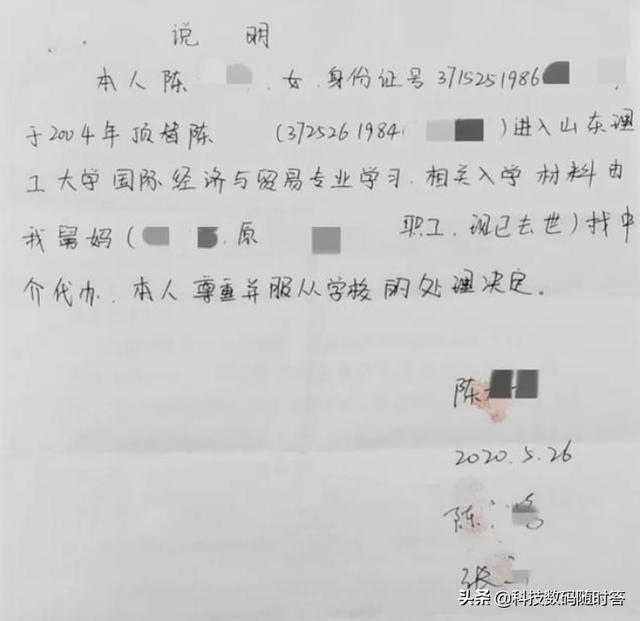 说 明
本人陈 ,女,身份证号3715251986
于2004年顶替陈 (3725261984 )进入山东理
工大学国际经济与贸易专业学习.相关入学材料由
我舅妈( ,原 职工,现已去世)找中
介代办.本人尊重并服从学校的处理决定.
陈
2020.5.26
陈
张
头条 @科技数码随时答